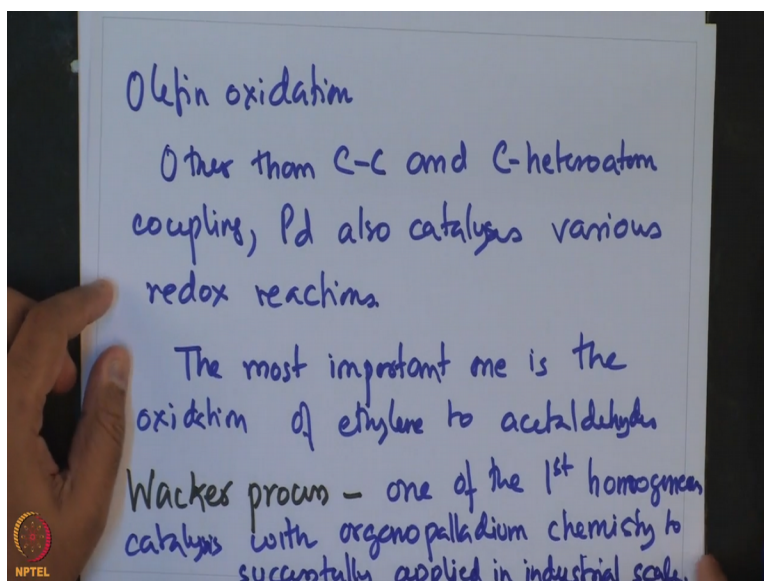 Olefin oxidation
Other than C-C and C-heteroatom
coupling, Pd also catalyses various
redox reactions.
The most important one is the
oxidation of ethylene to acetaldehyde
Wacker process - one of the 1st homogeneous
catalysis with organopalladium chemistry to
successfully applied in industrial scale.
NPTEL